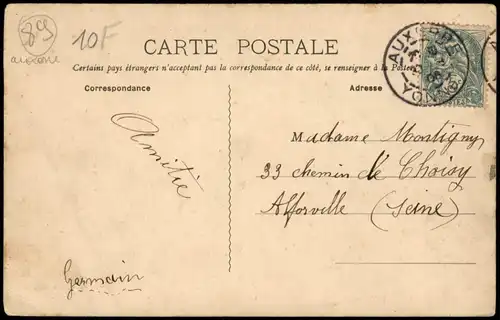 89
auxerre
10F
CARTE POSTALE
Certains pays étrangers n'acceptant pas la correspondance de ce côté, se renseigner à la Poste
Correspondance
Adresse
AUXERRE
YONNE
Amitié
Madame Montigny
33 chemin de Choisy
Alforville (Seine)
Germain